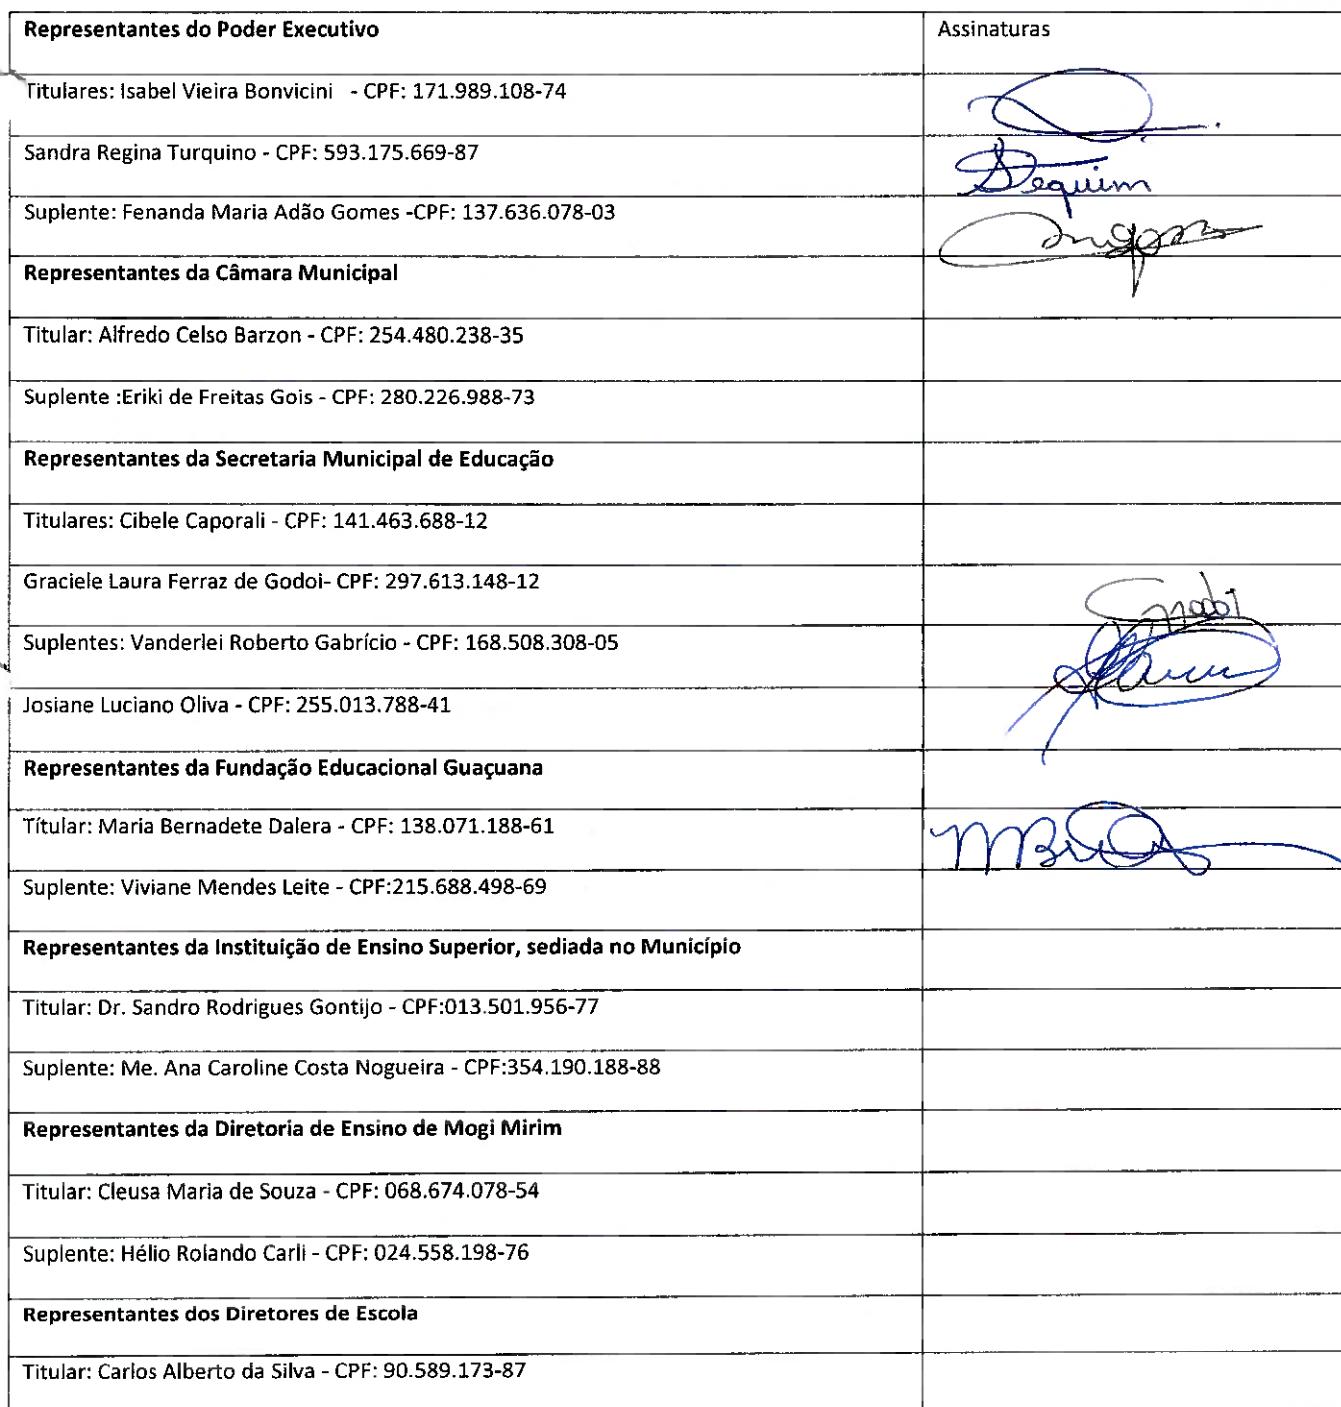 Representantes do Poder Executivo Assinaturas
Titulares: Isabel Vieira Bonvicini - CPF: 171.989.108-74
Sandra Regina Turquino - CPF: 593.175.669-87
Suplente: Fenanda Maria Adão Gomes -CPF: 137.636.078-03
Representantes da Câmara Municipal
Titular: Alfredo Celso Barzon - CPF: 254.480.238-35
Suplente :Eriki de Freitas Gois - CPF: 280.226.988-73
Representantes da Secretaria Municipal de Educação
Titulares: Cibele Caporali - CPF: 141.463.688-12
Graciele Laura Ferraz de Godoi- CPF: 297.613.148-12
Suplentes: Vanderlei Roberto Gabrício - CPF: 168.508.308-05
Josiane Luciano Oliva - CPF: 255.013.788-41
Representantes da Fundação Educacional Guaçuana
Títular: Maria Bernadete Dalera - CPF: 138.071.188-61
Suplente: Viviane Mendes Leite - CPF:215.688.498-69
Representantes da Instituição de Ensino Superior, sediada no Município
Titular: Dr. Sandro Rodrigues Gontijo - CPF:013.501.956-77
Suplente: Me. Ana Caroline Costa Nogueira - CPF:354.190.188-88
Representantes da Diretoria de Ensino de Mogi Mirim
Titular: Cleusa Maria de Souza - CPF: 068.674.078-54
Suplente: Hélio Rolando Carli - CPF: 024.558.198-76
Representantes dos Diretores de Escola
Titular: Carlos Alberto da Silva - CPF: 90.589.173-87